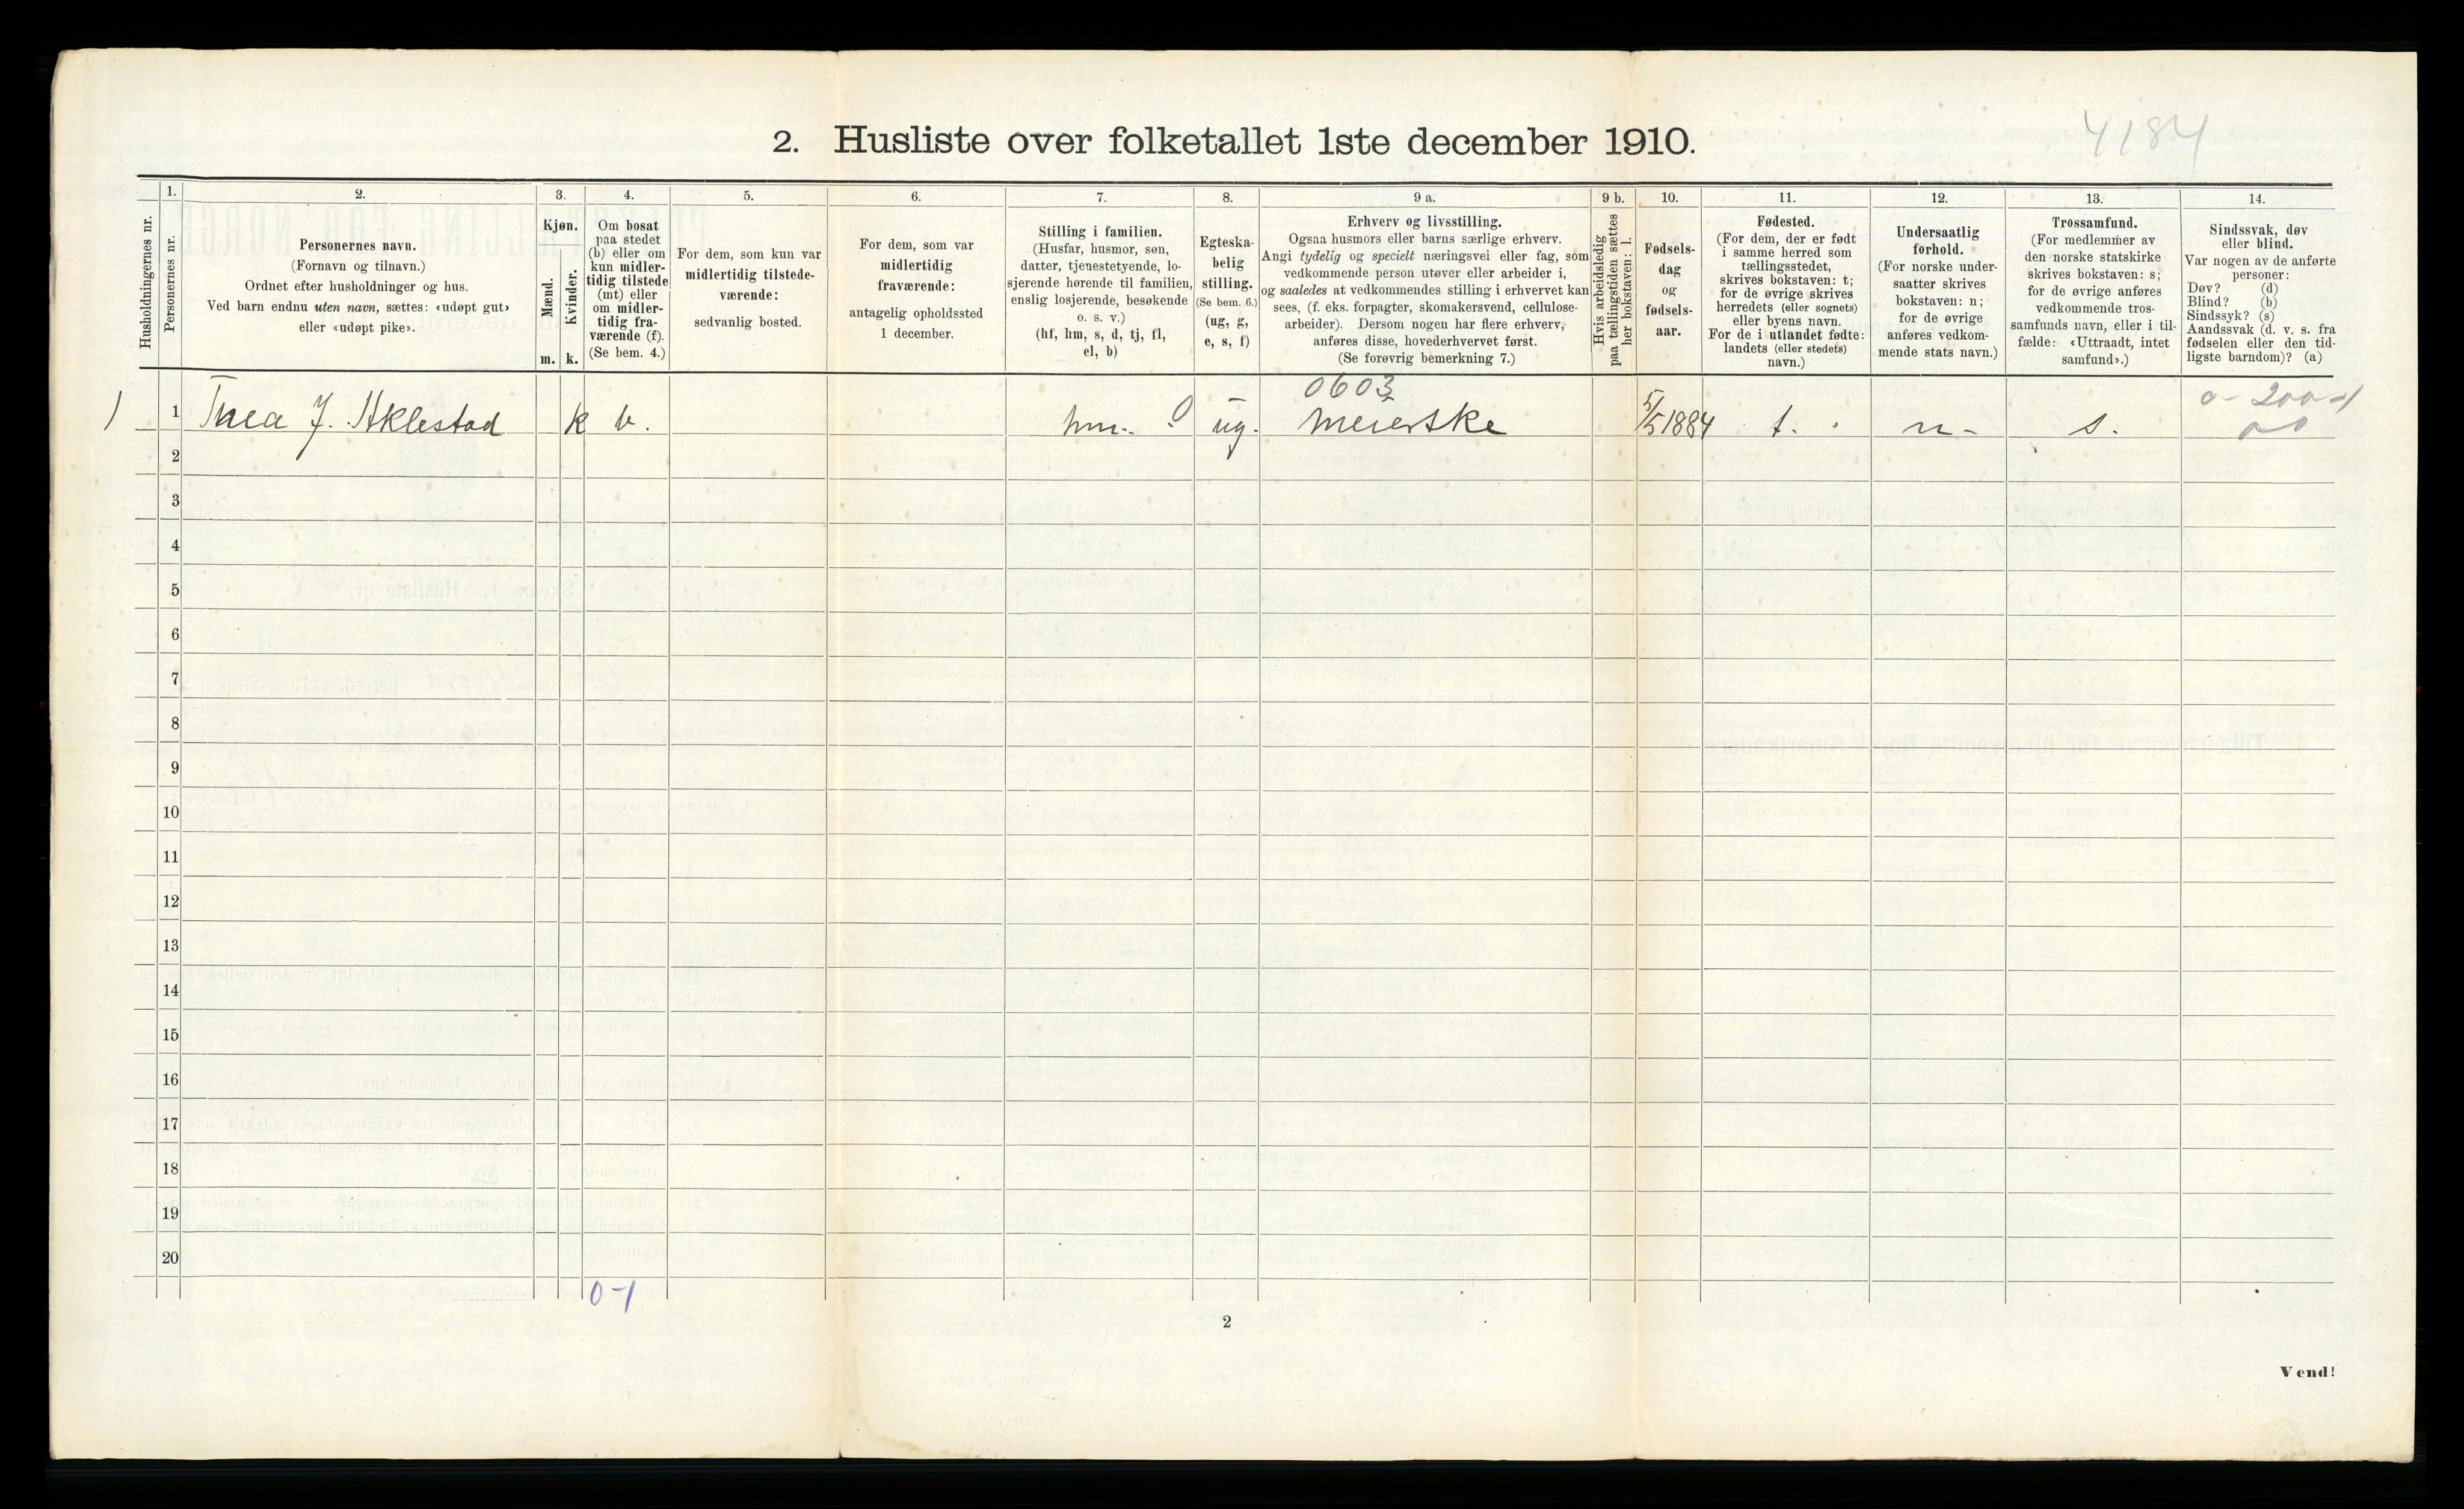 4184
2. Husliste over folketallet 1ste december 1910.
Husholdningernes nr.
1.
Personernes nr.
2.
Personernes navn.
(Fornavn og tilnavn.)
Ordnet efter husholdninger og hus.
Ved barn endnu uten navn, sættes: «udøpt gut»
eller «udøpt pike».
3.
Kjøn.
Mænd.
Kvinder.
m. k.
4.
Om bosat
paa stedet
(b) eller om
kun midler-
tidig tilstede
(mt) eller
om midler-
tidig fra-
værende (f).
(Se bem. 4.)
5.
For dem, som kun var
midlertidig tilstede-
værende:
sedvanlig bosted.
6.
For dem, som var
midlertidig
fraværende:
antagelig opholdssted
1 december.
7.
Stilling i familien.
(Husfar, husmor, søn,
datter, tjenestetyende, lo-
sjerende hørende til familien,
enslig losjerende, besøkende
o. s. v.)
(hf, hm, s, d, tj, fl,
el, b)
8.
Egteska-
belig
stilling.
(Se bem. 6.)
(ug, g,
e, s, f)
9 a.
Erhverv og livsstilling.
Ogsaa husmors eller barns særlige erhverv.
Angi tydelig og specielt næringsvei eller fag, som
vedkommende person utøver eller arbeider i,
og saaledes at vedkommendes stilling i erhvervet kan
sees, (f. eks. forpagter, skomakersvend, cellulose-
arbeider). Dersom nogen har flere erhverv,
anføres disse, hovederhvervet først.
(Se forøvrig bemerkning 7.)
9 b.
Hvis arbeidsledig
paa tællingstiden sættes
her bokstaven: l.
10.
Fødsels-
dag
og
fødsels-
aar.
11.
Fødested.
(For dem, der er født
i samme herred som
tællingsstedet,
skrives bokstaven: t;
for de øvrige skrives
herredets (eller sognets)
eller byens navn.
For de i utlandet fødte:
landets (eller stedets)
navn.)
12.
Undersaatlig
forhold.
(For norske under-
saatter skrives
bokstaven: n;
for de øvrige
anføres vedkom-
mende stats navn.)
13.
Trossamfund.
(For medlemmer av
den norske statskirke
skrives bokstaven: s;
for de øvrige anføres
vedkommende tros-
samfunds navn, eller i til-
fælde: «Uttraadt, intet
samfund».)
14.
Sindssvak, døv
eller blind.
Var nogen av de anførte
personer:
Døv? (d)
Blind? (b)
Sindssyk? (s)
Aandssvak (d. v. s. fra
fødselen eller den tid-
ligste barndom)? (a)
0603
0-200-1
00
1 1 Thea J. Aklestad k b. hm. 0 ug. Meierske 5/5 1884 t. n- s.
2
3
4
5
6
7
8
9
10
11
12
13
14
15
16
17
18
19
20
0-1
2
Vend!